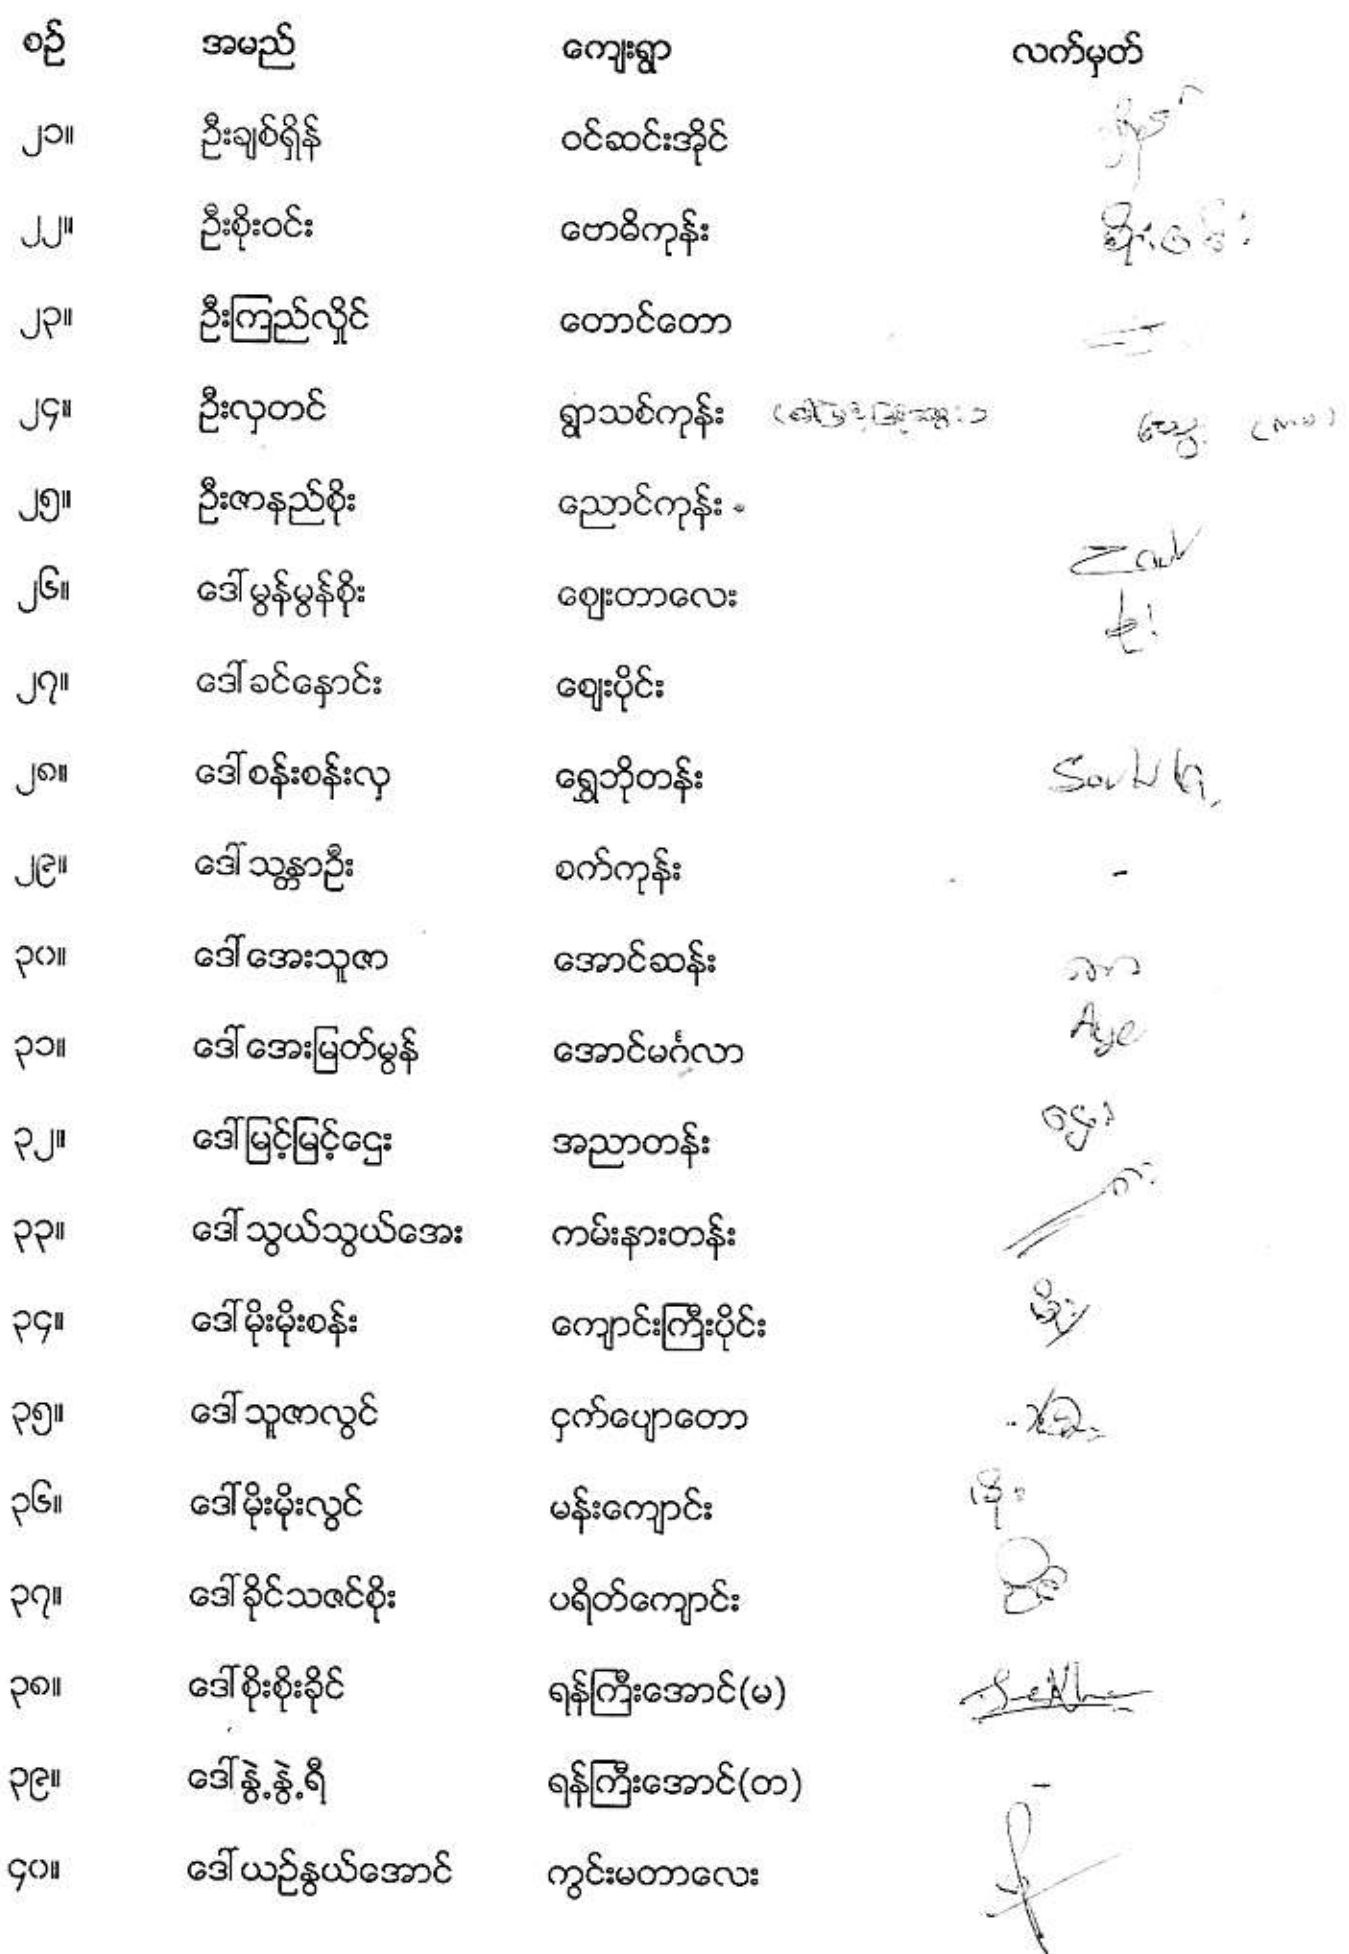 စဉ် အမည် ကျေးရွာ လက်မှတ်
၂၁။ ဦးချစ်ရှိန် ဝင်ဆင်းအိုင်
၂၂။ ဦးစိုးဝင်း ဗောဓိကုန်း
၂၃။ ဦးကြည်လှိုင် တောင်တော
၂၄။ ဦးလှတင် ရွာသစ်ကုန်း
၂၅။ ဦးဇာနည်စိုး ညောင်ကုန်း
၂၆။ ဒေါ်မွန်မွန်စိုး ဈေးတာလေး
၂၇။ ဒေါ်ခင်နှောင်း ဈေးပိုင်း
၂၈။ ဒေါ်စန်းစန်းလှ ရွှေဘိုတန်း
၂၉။ ဒေါ်သန္တာဦး စက်ကုန်း -
၃၀။ ဒေါ်အေးသူဇာ အောင်ဆန်း
၃၁။ ဒေါ်အေးမြတ်မွန် အောင်မင်္ဂလာ Aye
၃၂။ ဒေါ်မြင့်မြင့်ဌေး အညာတန်း
၃၃။ ဒေါ်သွယ်သွယ်အေး ကမ်းနားတန်း
၃၄။ ဒေါ်မိုးမိုးစန်း ကျောင်းကြီးပိုင်း
၃၅။ ဒေါ်သူဇာလွင် ငှက်ပျောတော
၃၆။ ဒေါ်မိုးမိုးလွင် မန်းကျောင်း
၃၇။ ဒေါ်ခိုင်သဇင်စိုး ပရိတ်ကျောင်း
၃၈။ ဒေါ်စိုးစိုးခိုင် ရန်ကြီးအောင်(မ)
၃၉။ ဒေါ်နွဲ့နွဲ့ရီ ရန်ကြီးအောင်(တ) -
၄၀။ ဒေါ်ယဉ်နွယ်အောင် ကွင်းမတာလေး